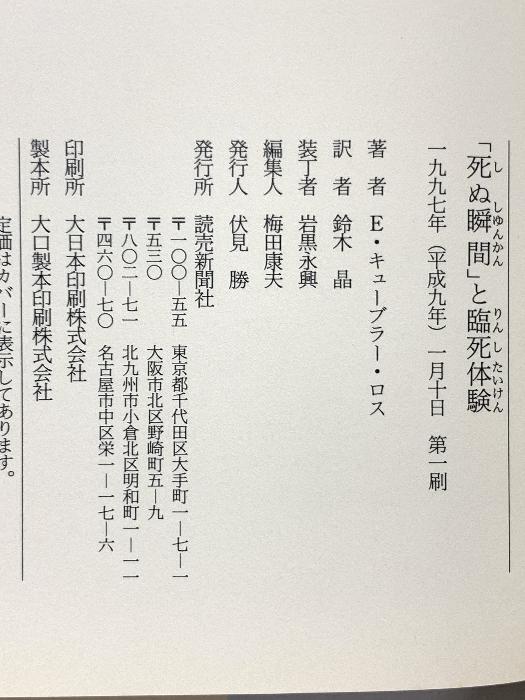 「死ぬ瞬間」と臨死体験
一九九七年（平成九年）一月十日　第一刷
著　者　E・キューブラー・ロス
訳　者　鈴木　晶
装丁者　岩黒永興
編集人　梅田康夫
発行人　伏見　勝
発行所　読売新聞社
〒一〇〇―五五　東京都千代田区大手町一―七―一
〒五三〇　大阪市北区野崎町五―九
〒八〇二―七一　北九州市小倉北区明和町一―一一
〒四六〇―七〇　名古屋市中区栄一―一七―六
印刷所　大日本印刷株式会社
製本所　大口製本印刷株式会社
定価はカバーに表示してあります。